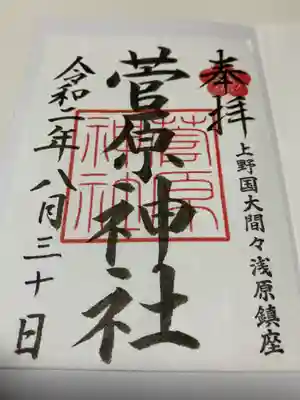 奉拝
上野国大間々浅原鎮座
菅原神社
菅原
神社
令和二年八月三十日